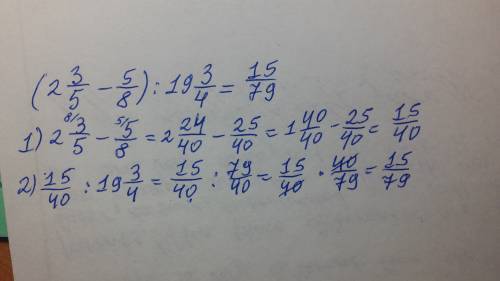 (2 3/5 − 5/8) : 19 3/4 = 15/79
1) 2 ⁸⁄3/5 − ⁵⁄5/8 = 2 24/40 − 25/40 = 1 40/40 − 25/40 = 15/40
2) 15/40 : 19 3/4 = 15/40 : 79/40 = 15/40 · 40/79 = 15/79